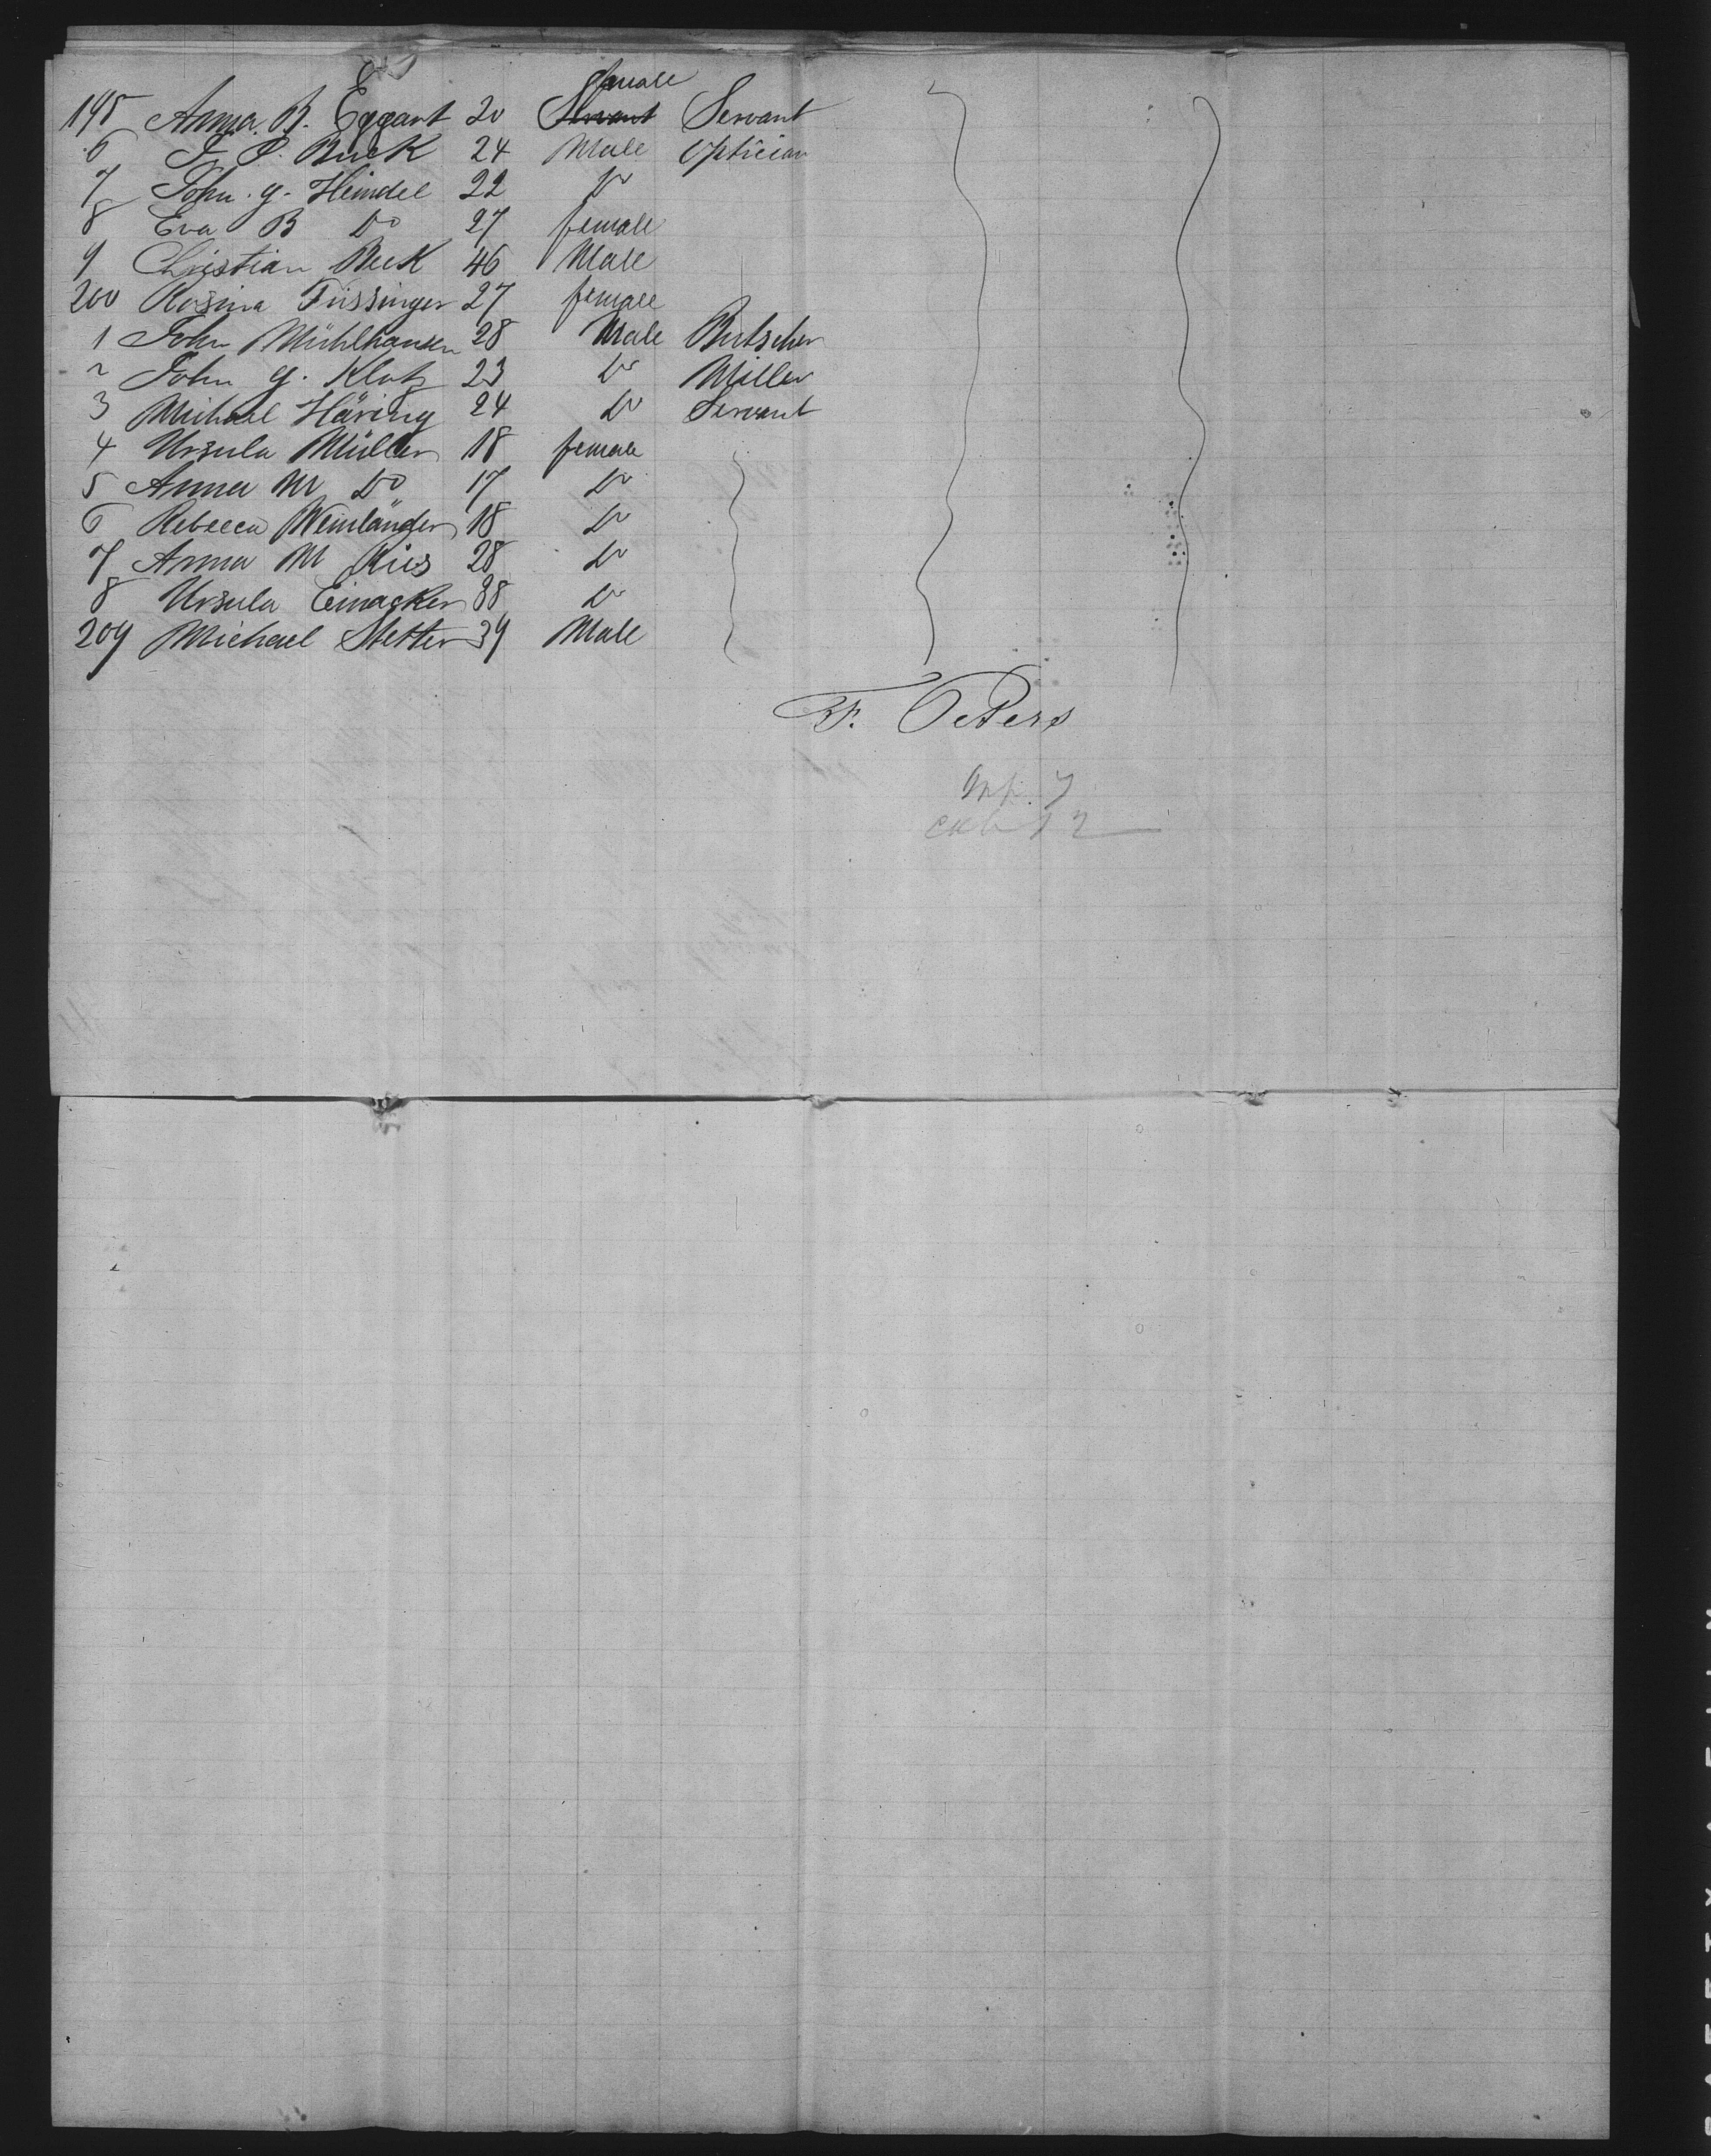 female
195 Anna B. Eggart 20 Servant Servant
6 J. P. Buck 24 Male Optician
7 John. G. Heindel 22 Do
8 Eva B Do 27 female
9 Christian Beck 46 Male
200 Rosina Füssinger 27 female
1 John Mühlhausen 28 Male Butscher
2 John G. Klotz 23 Do Miller
3 Michael Häring 24 Do Servant
4 Ursula Müller 18 female
5 Anna M Do 17 Do
6 Rebecca Weinländer 18 Do
7 Anna M Kies 28 Do
8 Ursula Einacker 38 Do
209 Michael Stetter 39 Male
F. Peters